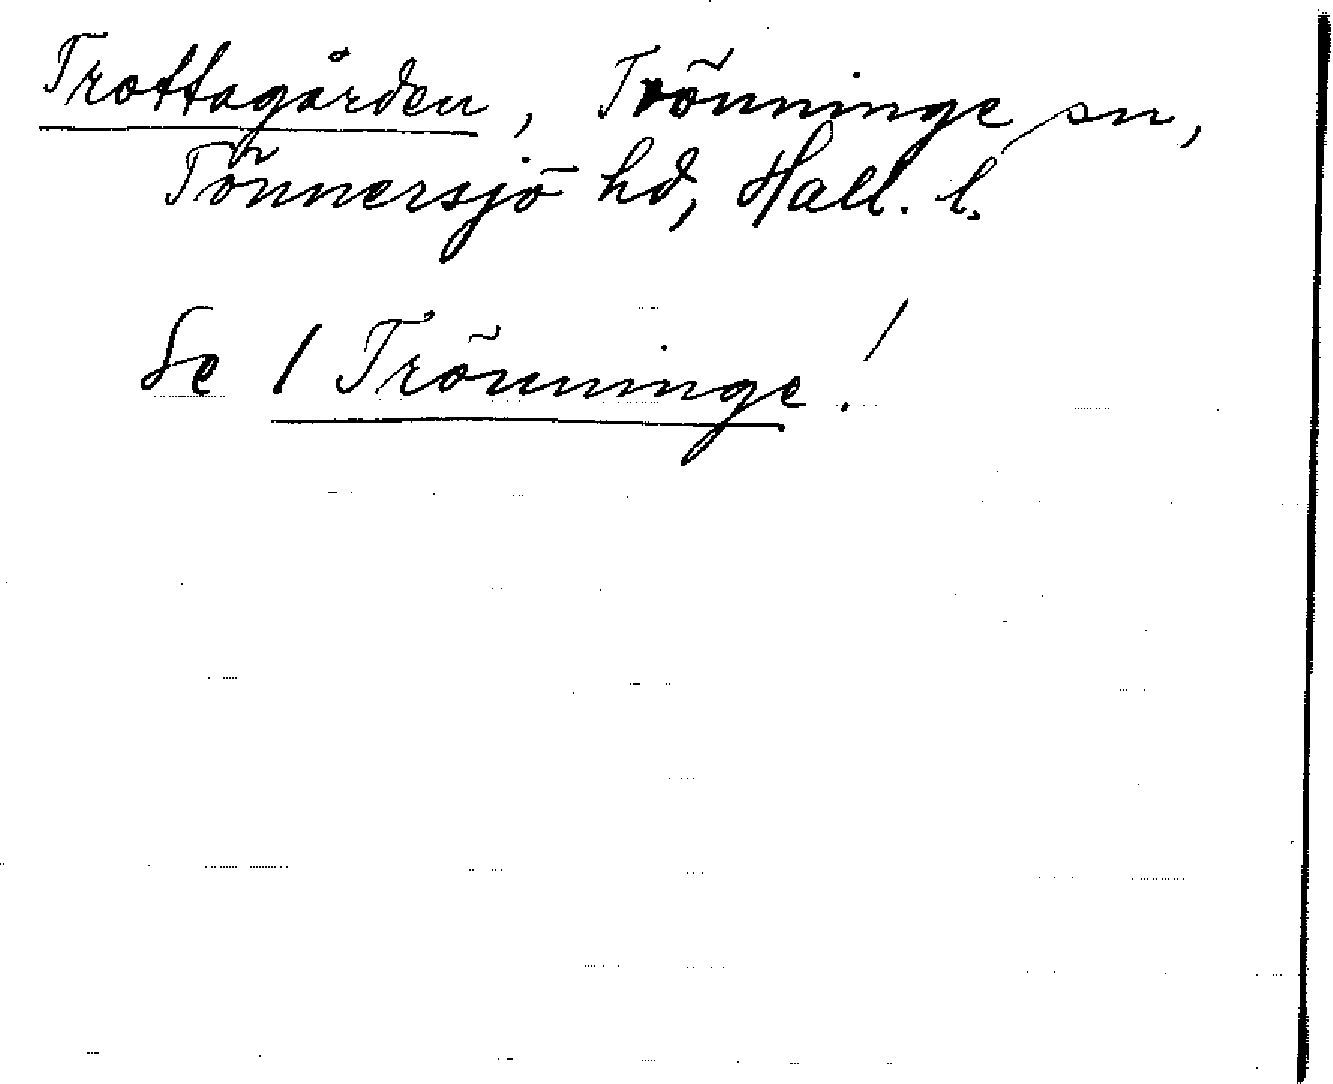 Trottagården, Trönninge sn,
Tönnersjö hd, Hall. l.
Se 1 Trönninge!